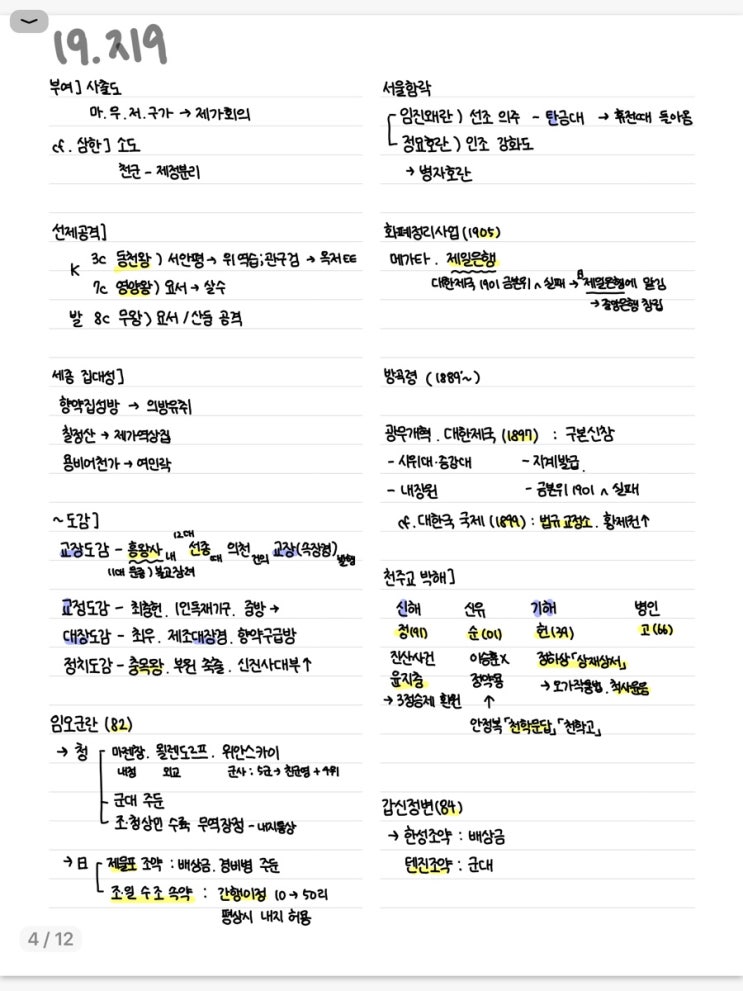 19.지9
부여] 사출도
마.우.저.구가 → 제가회의
cf. 삼한] 소도
천군 - 제정분리
선제공격]
K 3c 동천왕) 서안평 → 위 역습;관구검 → 옥저 EE
7c 영양왕) 요서 → 살수
발 8c 무왕) 요서/산둥 공격
세종 집대성]
향약집성방 → 의방유취
칠정산 → 제가역상집
용비어천가 → 여민락
~도감]
12대
교장도감 - 흥왕사 내 선종 때 의천 건의 교장(속장경) 발행
(11대 문종) 불교장려
교정도감 - 최충헌. 1인독재기구. 중방 →
대장도감 - 최우. 제조대장경. 향약구급방
정치도감 - 충목왕. 부원 축출. 신진사대부↑
임오군란 (82)
→ 청 마젠창. 묄렌도르프. 위안스카이
내정 외교 군사: 5군→친군영+4위
군대 주둔
조·청상민 수륙 무역장정 - 내지통상
→ 日 제물포 조약 : 배상금. 경비병 주둔
조·일 수조 속약 : 간행이정 10 → 50리
평상시 내지 허용
서울함락
임진왜란) 선조 의주 - 탄금대 → 휴전때 돌아옴
정묘호란) 인조 강화도
→ 병자호란
화폐정리사업 (1905)
메가타. 제일은행
대한제국 1901 금본위 ∧ 실패 → 日제일은행에 맡김
→ 중앙은행 창립
방곡령 (1889~)
광무개혁. 대한제국 (1897) : 구본신참
- 시위대·증강대 - 지계발급.
- 내장원 - 금본위 1901 ∧ 실패
cf. 대한국 국제 (1899) : 법규 교정소. 황제권↑
천주교 박해]
신해 신유 기해 병인
정(91) 순(01) 헌(39) 고(66)
진산사건 이승훈X 정하상「상재상서」
윤지충 정약용 → 오가작통법. 척사윤음
→ 3정승제 환원 ↑
안정복「천학문답」「천학고」
갑신정변(84)
→ 한성조약 : 배상금
텐진조약 : 군대
4 / 12